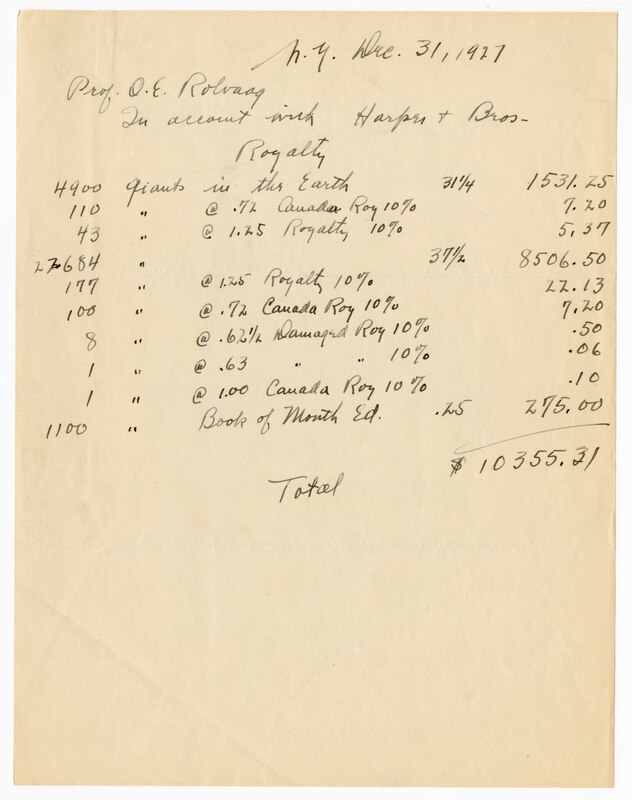 N.Y. Dec. 31, 1927
Prof. O.E. Rolvaag
In account with Harper + Bros-
Royalty
4900 Giants in the Earth 31 1/4 1531.25
110 " @ .72 Canada Roy 10% 7.20
43 " @ 1.25 Royalty 10% 5.37
22684 " 37 1/2 8506.50
177 " @ 1.25 Royalty 10% 22.13
100 " @ .72 Canada Roy 10% 7.20
8 " @ .62 1/2 Damaged Roy 10% .50
1 " @ .63 " " 10% .06
1 " @ 1.00 Canada Roy 10% .10
1100 " Book of Month Ed. .25 275.00
$ 10355.31
Total